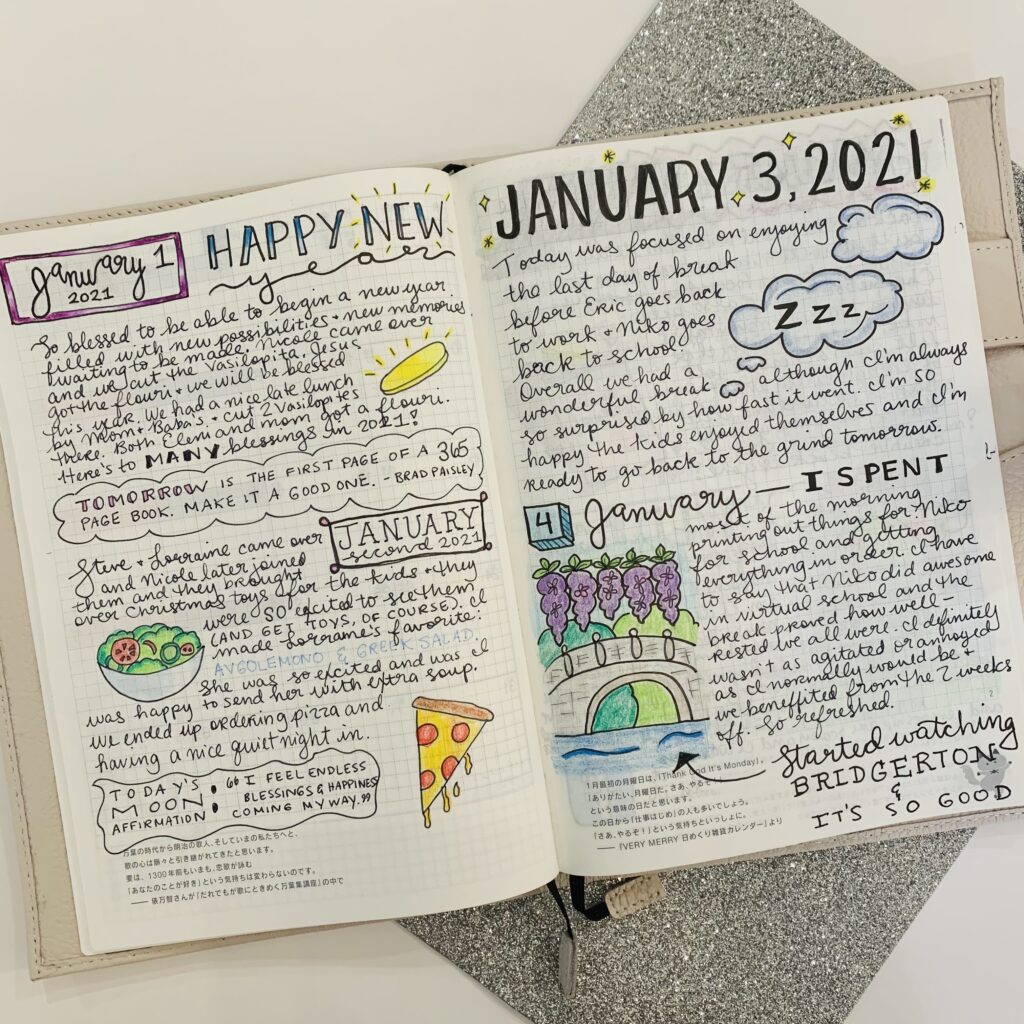 January 1
2021
HAPPY NEW
year
So blessed to be able to begin a new year
filled with new possibilities + new memories
waiting to be made. Nicole came over
and we cut the Vasilopita. Jesus
got the flouri + we will be blessed
this year. We had a nice late lunch
by Mom + Baba's + cut 2 Vasilopites
there. Both Eleni and mom got a flouri.
Here's to MANY blessings in 2021!
TOMORROW IS THE FIRST PAGE OF A 365
PAGE BOOK. MAKE IT A GOOD ONE. - BRAD PAISLEY
JANUARY
second 2021
Steve + Lorraine came over
and Nicole later joined
them and they brought
over Christmas toys for the kids + they
were SO excited to see them
(AND GET TOYS, OF COURSE). I
made Lorraine's favorite:
AVGOLEMONO, & GREEK SALAD.
She was so excited and was I
was happy to send her with extra soup.
We ended up ordering pizza and
having a nice quiet night in.
TODAY'S
MOON
AFFIRMATION:
"I FEEL ENDLESS
BLESSINGS & HAPPINESS
COMING MY WAY."
万葉の時代から明治の歌人、そしていまの私たちへと、
歌の心は脈々と引き継がれてきたと思います。
要は、1300年前もいまも、恋歌が詠む
「あなたのことが好き」という気持ちは変わらないのです。
―― 俵万智さんが『だれでもが歌にときめく万葉集講座』の中で
JANUARY 3, 2021
Today was focused on enjoying
the last day of break
before Eric goes back
to work + Niko goes
back to school.
Overall we had a
wonderful break although I'm always
so surprised by how fast it went. I'm so
happy the kids enjoyed themselves and I'm
ready to go back to the grind tomorrow.
ZZZ
4 January — I SPENT
most of the morning
printing out things for Niko
for school and getting
everything in order. I have
to say that Niko did awesome
in virtual school and the
break proved how well-
rested we all were. I definitely
wasn't as agitated or annoyed
as I normally would be +
we benefited from the 2 weeks
off. So refreshed.
Started watching
BRIDGERTON
&
IT'S SO GOOD
1月最初の月曜日は、「Thank God It's Monday」。
「ありがたい、月曜日だ。さあ、やるぞ!」
という意味の日だと思います。
この日から「仕事はじめ」の人も多いでしょう。
「さあ、やるぞ!」という気持ちといっしょに。
――『VERY MERRY 日めくり雑貨カレンダー』より